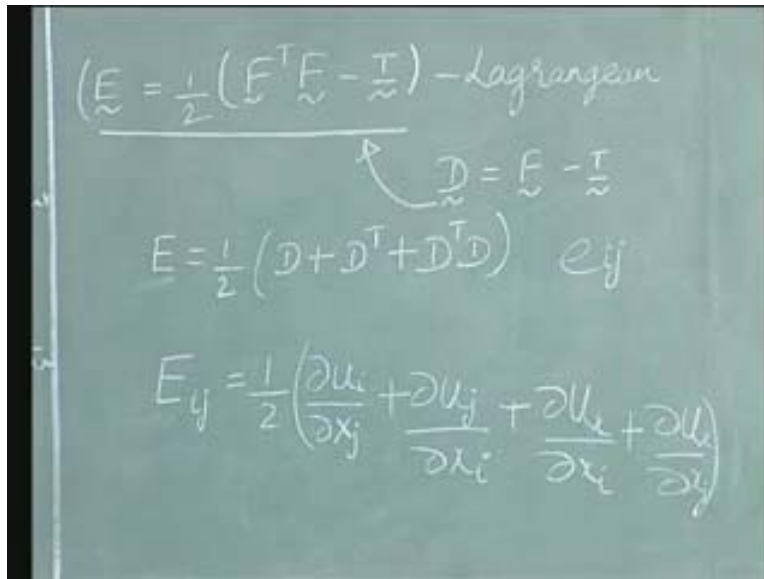 (E = 1/2 (FᵀF - I) - Lagrangean
D = F - I
E = 1/2 (D + Dᵀ + DᵀD) eij
Eij = 1/2 (∂ui/∂xj + ∂uj/∂xi + ∂uk/∂xi + ∂uk/∂xj)